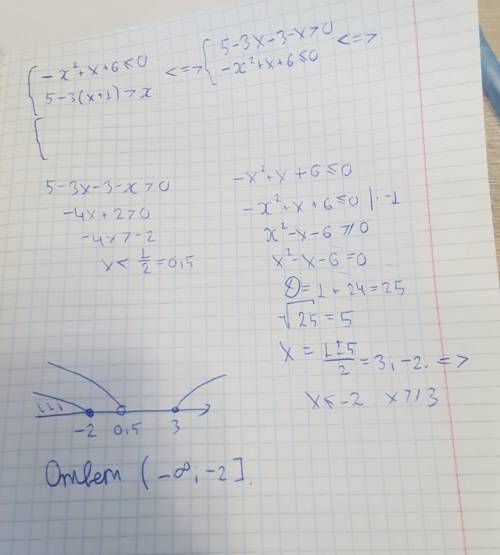 { -x²+x+6≤0 <=> { 5-3x-3-x>0 <=>
5-3(x+1)>x. -x²+x+6≤0
{
5-3x-3-x>0
-4x+2>0
-4x>-2
x< 1/2 =0,5
-x²+x+6≤0
-x²+x+6≤0 |·-1
x²-x-6≥0
x²-x-6=0
D=1+24=25
√25=5
x = (1±5)/2 = 3; -2. =>
x≤-2 x≥3
-2 0,5 3
Ответ (-∞; -2].